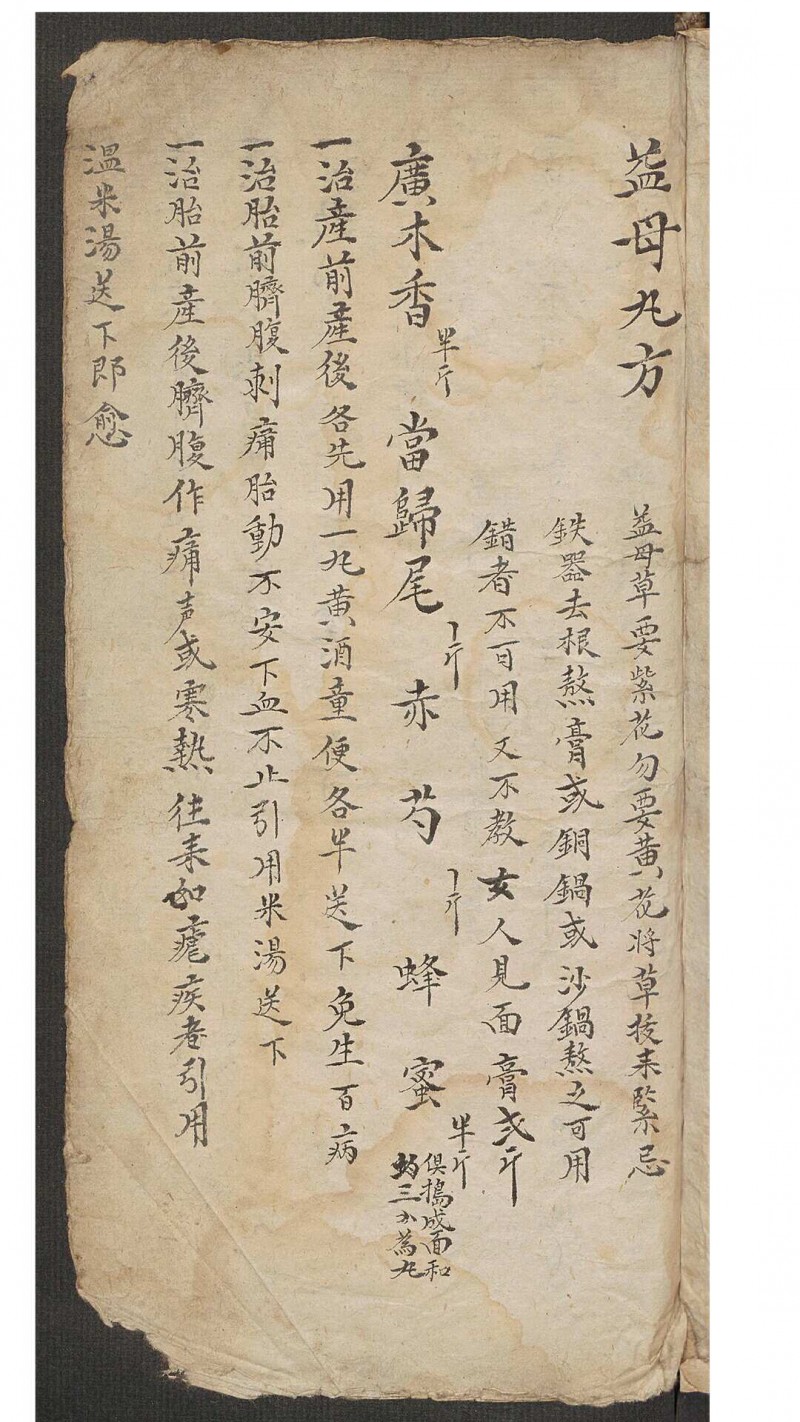 益母丸方
益母草要紫花勿要黄花將草拔来緊忌
鉄器去根熬膏或銅鍋或沙鍋熬之可用
錯者不可用又不教女人見面膏弍斤
廣木香半斤 當歸尾丨斤 赤芍丨斤 蜂蜜半斤 俱搗成面和
三 為丸
一治產前產後各先用一丸黄酒童便各半送下免生百病
一治胎前臍腹刺痛胎動不安下血不止引用米湯送下
一治胎前產後臍腹作痛声或寒熱往来如瘧疾者引用
温米湯送下即愈